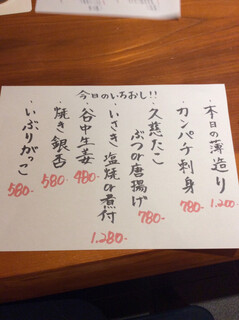 今日のいちおし!!
・本日の薄造り 1.200-
・カンパチ刺身 780-
・久慈たこ
ぶつor唐揚げ 780-
・いさき塩焼or煮付 1.280-
・谷中生姜 480-
・焼き銀杏 580-
・いぶりがっこ 580-